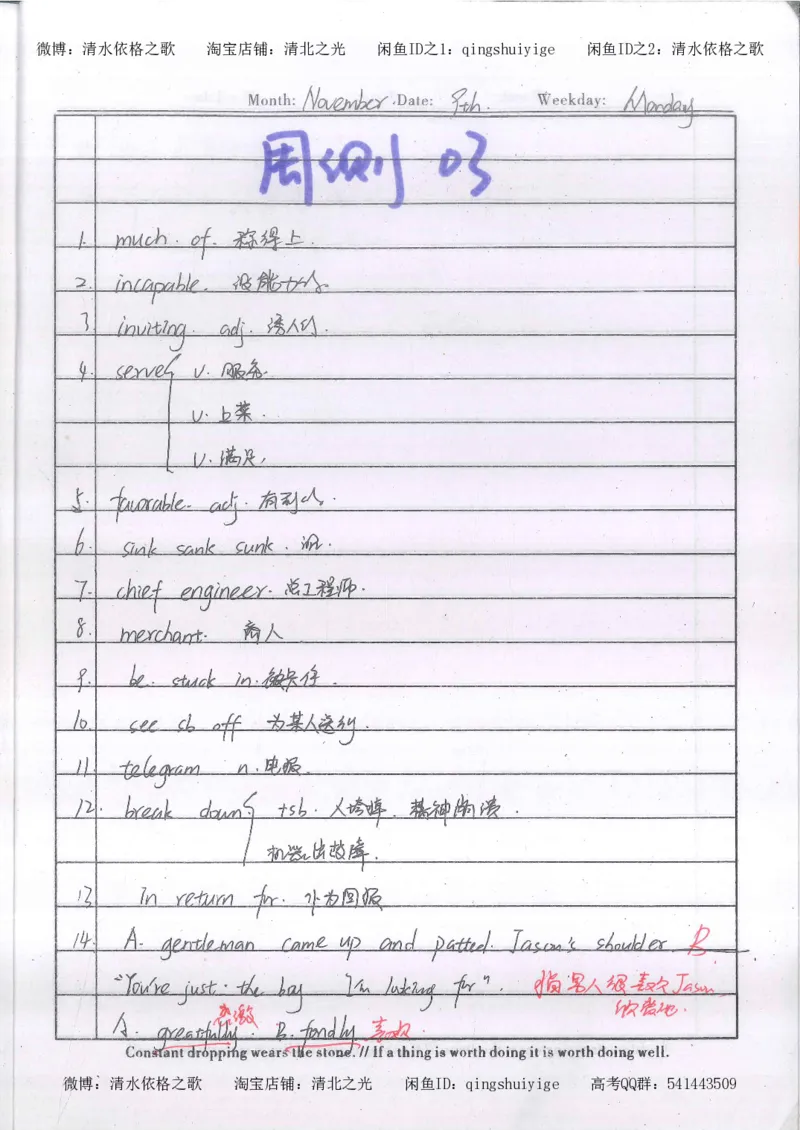 微博：清水依格之歌 淘宝店铺：清北之光 闲鱼ID之1：qingshuiyige 闲鱼ID之2：清水依格之歌
Month: November Date: 9th. Weekday: Monday
周测 03
1. much of. 称得上.
2. incapable. 没能力
3 inviting. adj. 诱人的.
4. serve { v. 服务.
v. 上菜.
v. 满足,
5. favorable. adj. 有利
6. sink sank sunk. 沉.
7. chief engineer. 总工程师.
8. merchant. 商人
9. be stuck in. 被卡住.
10. see sb off 为某人送行.
11. telegram n. 电报.
12. break down { +sb. 人垮掉. 精神崩溃.
机器出故障.
13 In return for. 作为回报
14. A. gentleman came up and patted. Jason's shoulder. B
"You're just the boy I'm looking for". 指男人很喜欢Jason
欣赏地.
感激
A. greatfully. B. fondly 喜欢.
Constant dropping wears the stone. // If a thing is worth doing it is worth doing well.
微博：清水依格之歌 淘宝店铺：清北之光 闲鱼ID：qingshuiyige 高考QQ群：541443509